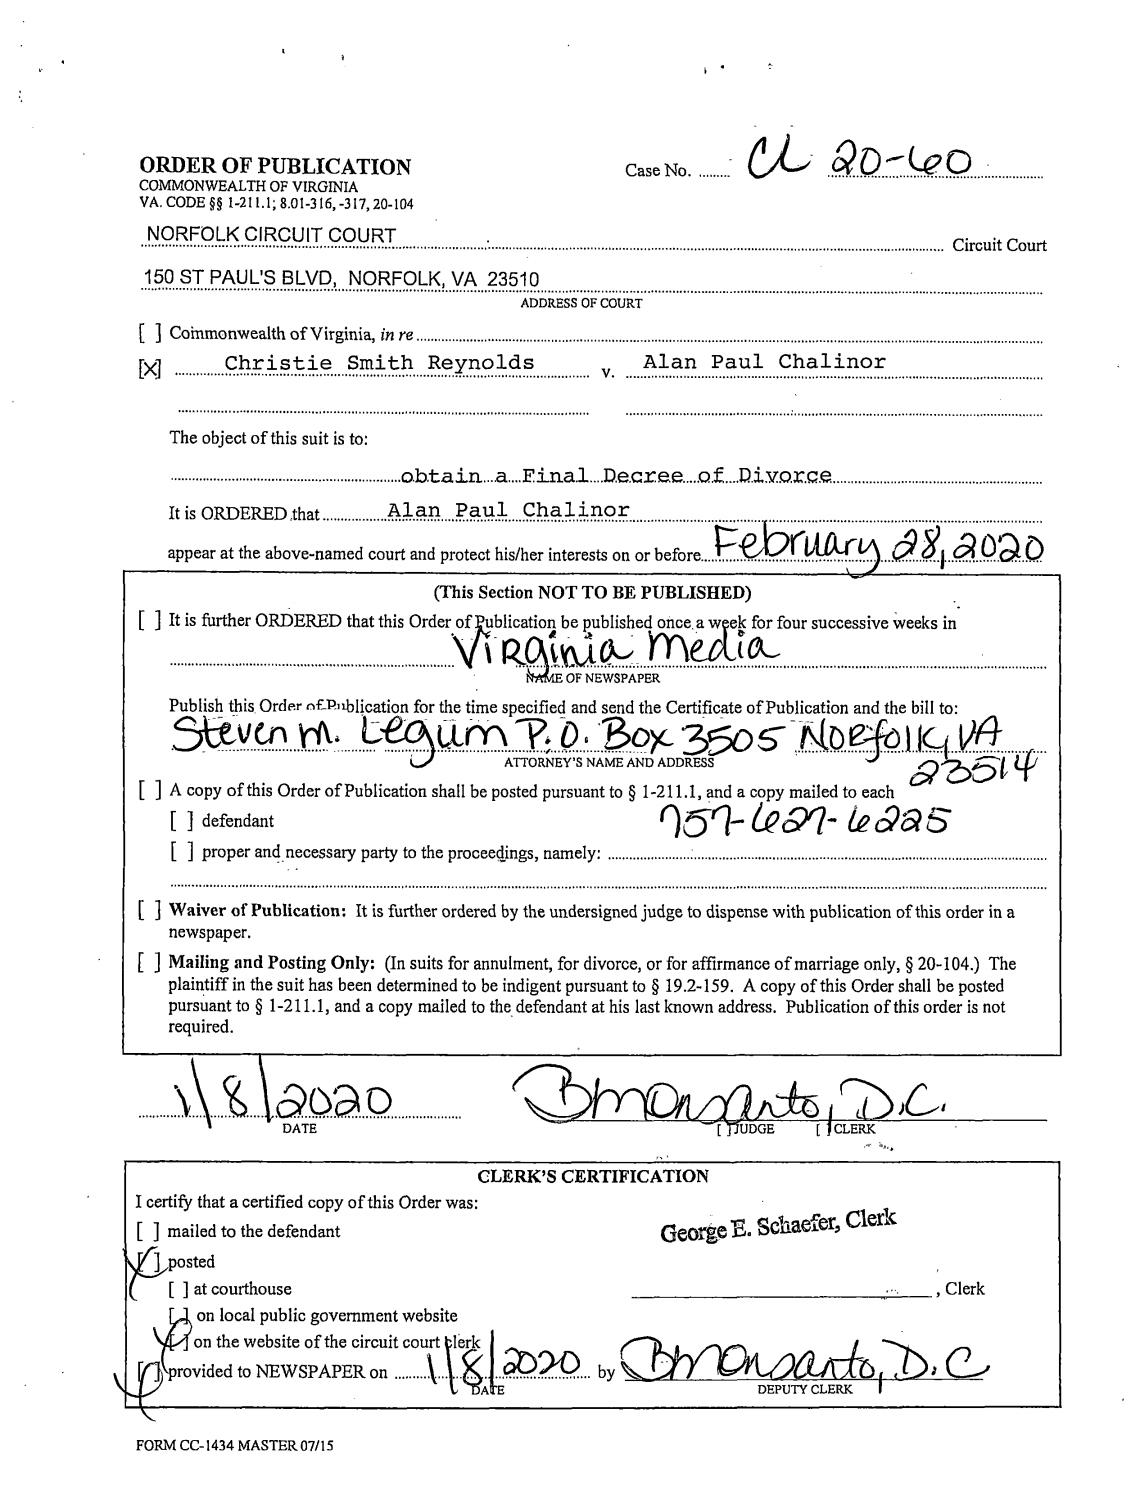 ORDER OF PUBLICATION
Case No. CL 20-60
COMMONWEALTH OF VIRGINIA
VA. CODE §§ 1-211.1; 8.01-316, -317, 20-104
NORFOLK CIRCUIT COURT Circuit Court
150 ST PAUL'S BLVD, NORFOLK, VA 23510
ADDRESS OF COURT
[ ] Commonwealth of Virginia, in re
[X] Christie Smith Reynolds v. Alan Paul Chalinor
The object of this suit is to:
obtain a Final Decree of Divorce
It is ORDERED that Alan Paul Chalinor
appear at the above-named court and protect his/her interests on or before February 28, 2020
(This Section NOT TO BE PUBLISHED)
[ ] It is further ORDERED that this Order of Publication be published once a week for four successive weeks in
Virginia Media
NAME OF NEWSPAPER
Publish this Order of Publication for the time specified and send the Certificate of Publication and the bill to:
Steven M. Legum P.O. Box 3505 Norfolk, VA
ATTORNEY'S NAME AND ADDRESS
23514
[ ] A copy of this Order of Publication shall be posted pursuant to § 1-211.1, and a copy mailed to each
[ ] defendant 757-627-6225
[ ] proper and necessary party to the proceedings, namely:
[ ] Waiver of Publication: It is further ordered by the undersigned judge to dispense with publication of this order in a
newspaper.
[ ] Mailing and Posting Only: (In suits for annulment, for divorce, or for affirmance of marriage only, § 20-104.) The
plaintiff in the suit has been determined to be indigent pursuant to § 19.2-159. A copy of this Order shall be posted
pursuant to § 1-211.1, and a copy mailed to the defendant at his last known address. Publication of this order is not
required.
1/8/2020 BMonsanto, D.C.
DATE [ ] JUDGE [ ] CLERK
CLERK'S CERTIFICATION
I certify that a certified copy of this Order was:
[ ] mailed to the defendant
George E. Schaefer, Clerk
[✓] posted
[ ] at courthouse , Clerk
[ ] on local public government website
[✓] on the website of the circuit court clerk
[✓] provided to NEWSPAPER on 1/8/2020 by BMonsanto, D.C
DATE DEPUTY CLERK
FORM CC-1434 MASTER 07/15